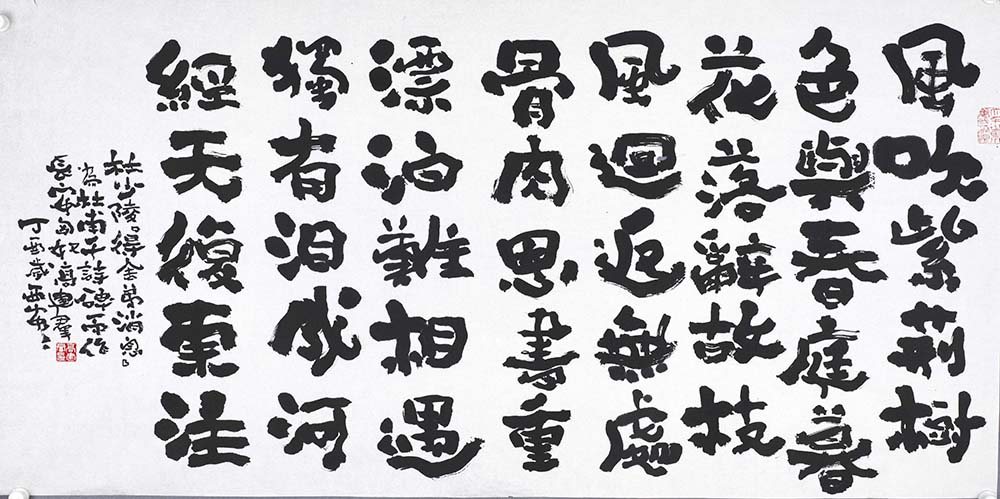 風吹紫荊樹
色與春庭暮
花落辭故枝
風迴返無處
骨肉恩書重
漂泊難相遇
獨有泪成河
經天復東注
杜少陵「得舍弟消息」
為杜甫千詩碑而作
長安
丁酉歲